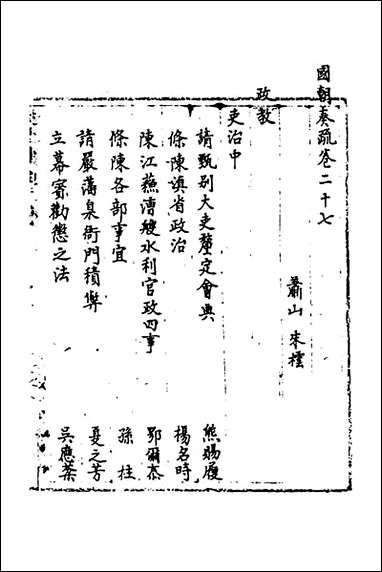 國朝奏疏卷二十七
蕭山 來檽
政教
吏治中
請甄别大吏釐定會典 熊賜履
條陳滇省政治 楊名時
陳江蘇漕艘水利官政四事 鄂爾泰
條陳各部事宜 孫柱
請嚴藩臬衙門積弊 夏之芳
立幕賓勸懲之法 吳應棻